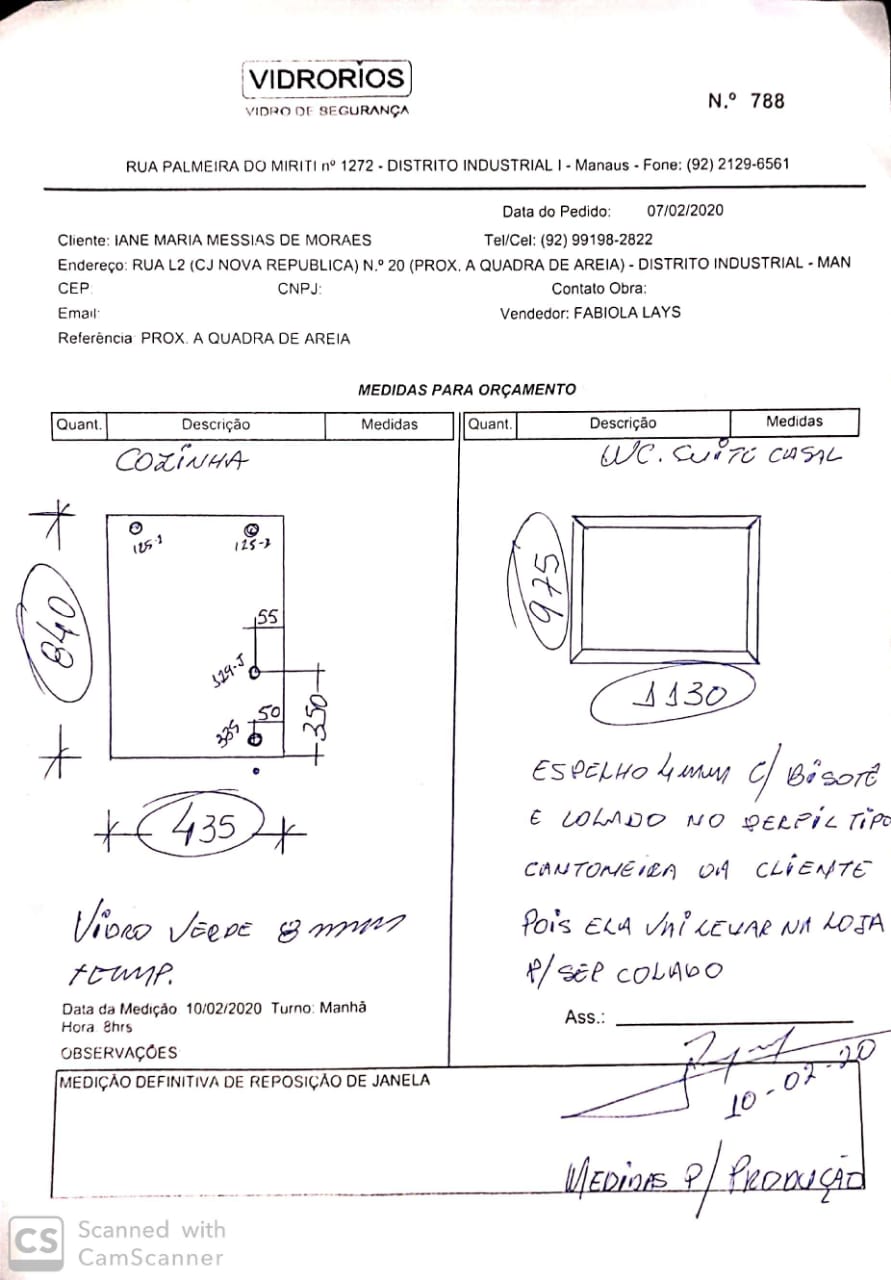 VIDRORIOS
VIDRO DE SEGURANÇA
N.º 788
RUA PALMEIRA DO MIRITI nº 1272 - DISTRITO INDUSTRIAL I - Manaus - Fone: (92) 2129-6561
Data do Pedido: 07/02/2020
Cliente: IANE MARIA MESSIAS DE MORAES Tel/Cel: (92) 99198-2822
Endereço: RUA L2 (CJ NOVA REPUBLICA) N.º 20 (PROX. A QUADRA DE AREIA) - DISTRITO INDUSTRIAL - MAN
CEP: CNPJ: Contato Obra:
Email: Vendedor: FABIOLA LAYS
Referência: PROX. A QUADRA DE AREIA
MEDIDAS PARA ORÇAMENTO
Quant. Descrição Medidas
COZINHA
125-J 125-J
840
55
329-J
50
335
350
435
VIDRO VERDE 8 mmm
TEMP.
Data da Medição 10/02/2020 Turno: Manhã
Hora 8hrs
Quant. Descrição Medidas
WC. SUITE CASAL
975
1130
ESPELHO 4mm C/ BISOTÊ
E COLADO NO PERFIL TIPO
CANTONEIRA DA CLIENTE
POIS ELA VAI LEVAR NA LOJA
P/ SER COLADO
Ass.:
10-02-20
OBSERVAÇÕES
MEDIÇÃO DEFINITIVA DE REPOSIÇÃO DE JANELA
MEDIDAS P/ PRODUÇÃO
CS Scanned with
CamScanner